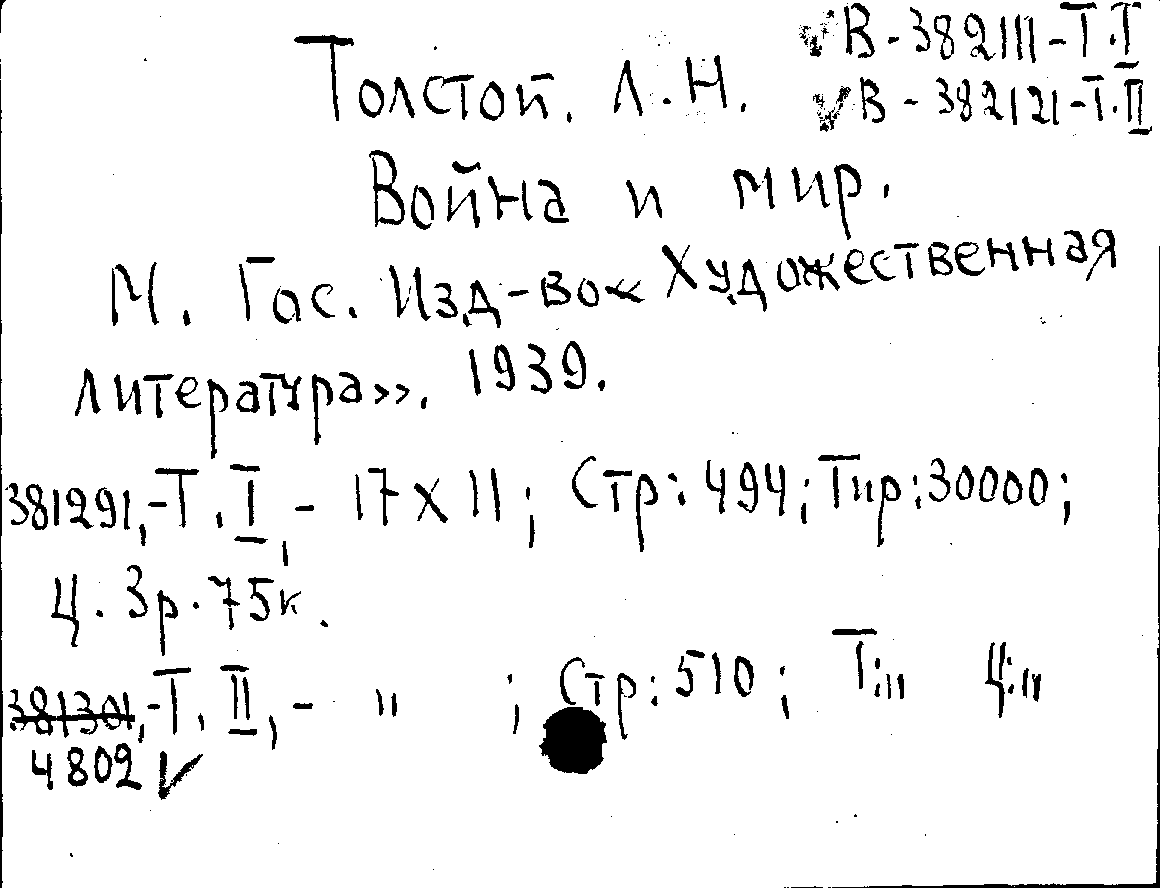 ✓В-382111-Т.I
✓В-382121-Т.II
Толстой. Л.Н.
Война и мир.
М. Гос. Изд-во «Художественная
литература». 1939.
381291,-Т.I,- 17 х 11; Стр: 494; Тир: 30000;
Ц. 3р. 75к.
381301,-Т. II,- " ; Стр: 510; Т:" Ц:"
4802 ✓